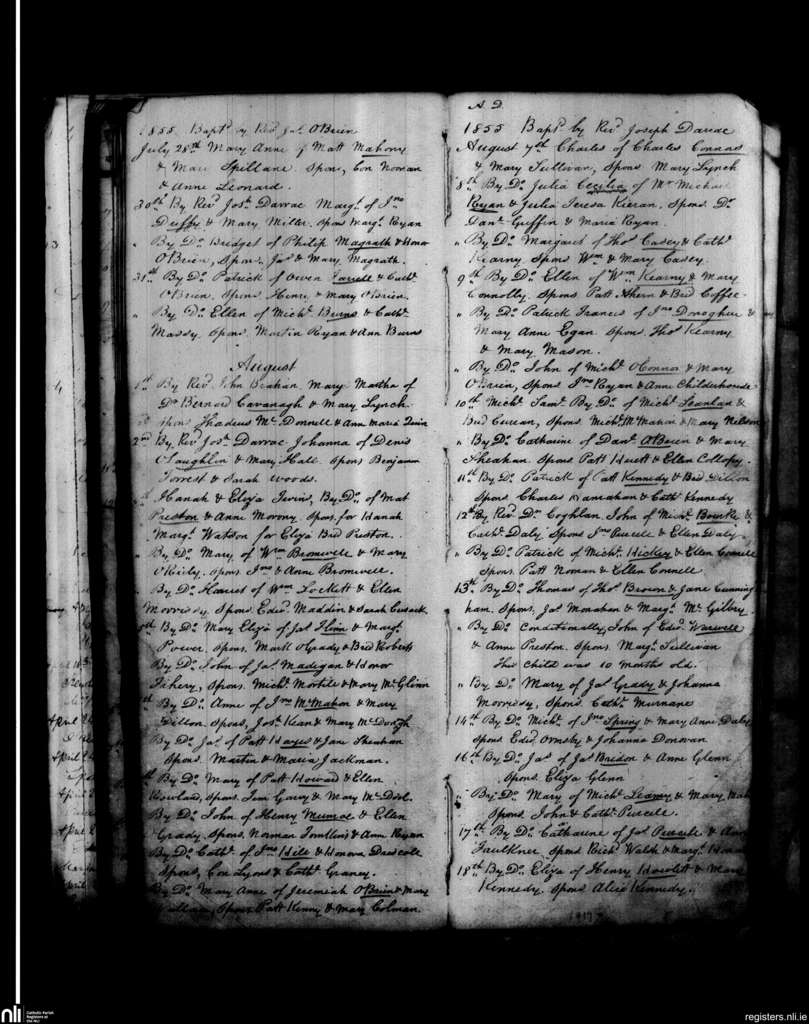 1855 Bapt.d by Rev.d Jas. OBrien
July 28th Mary Anne of Matt Mahony
& Mary Spillane. Spons, Con Noonan
& Anne Leonard.
30th By Rev.d Jos. Darrac Marg.t of Jno
Duffy & Mary Miller. Spons Marg.t Ryan
" By Do. Bridget of Philip Magrath & Honor
OBrien, Spons. Jas & Mary Magrath.
31st By Do. Patrick of Owen Farrell & Cath.
OBrien. Spons. Henry & Mary OBrien.
" By Do. Ellen of Mich.l Burns & Cath.
Massy. Spons. Martin Ryan & Ann Burns
August
1st By Rev.d John Brahan. Mary Martha of
Dr Bernard Cavanagh & Mary Lynch.
Spons Thadeus McDonnell & Ann Maria Quin
2nd By Rev.d Jos. Darrac Johanna of Denis
OLaughlin & Mary Hall. Spons Benjamin
Forrest & Sarah Woods.
Hanah & Eliza Twins, By Do. of Mat
Preston & Anne Morony. Spons. for Hanah
Marg.t Watson for Eliza Bid Preston.
By Do. Mary of Wm Bromwell & Mary
OReily. Spons Jno & Anne Bromwell.
By Do. Harriet of Wm Lockett & Ellen
Morrissy Spons Edwd. Maddin & Sarah Cusack.
By Do. Mary Eliza of Jas & Marg.t
Power. Spons. Mark OGrady & Bid Roberts
By Do. John of Jas. Madigan & Honor
Fahery, Spons. Mich.l & Mary McGlinn
By Do. Anne of Jno McMahon & Mary
Dillon. Spons, Jos. Kean & Mary McDongh
By Do. Jas. of Patt Hayes & Jane Sheahan
Spons. Martin & Maria Jackman.
By Do. Mary of Patt Howard & Ellen
Rowland, Spons. Tim Garvy & Mary
By Do. John of Henry Munroe & Ellen
Grady. Spons. Norman Tomkins & Ann Ryan
By Do. Cath. of Jno Hill & Honora Driscole
Spons, Con Lyons & Cath. Graney.
By Do. Mary Anne of Jeremiah OBrien & Mary
Spons. Patt Kenny & Mary Colman.
A.D.
1855 Bapt.d by Rev.d Joseph Darrac
August 7th Charles of Charles Connors
& Mary Sullivan, Spons Mary Lynch
8th By Do. Julia Cecilia of Mr Michael
Ryan & Julia Teresa Kieran. Spons. Dr.
Danl. Griffin & Maria Ryan.
" By Do. Margaret of Thos. Casey & Cath.
Kearny Spons Wm & Mary Casey.
9th By Do. Ellen of Wm Kearny & Mary
Connolly. Spons Patt Ahern & Bid Coffee
" By Do. Patrick Francis of Jno Donoghue &
Mary Anne Egan. Spons. Thos. Kearny
& Mary Mason.
" By Do. John of Mich.l OConnor & Mary
OBrien, Spons Jno Ryan & Anne Childerhouse
10th Mich.l Saml. By Do. of Mich.l Scanlan &
Bid Cureen, Spons, Mich.l McMahon & Mary Nelson
" By Do. Catharine of Danl. OBrien & Mary
Sheahan. Spons Patt Hewett & Ellen Collopy.
11th By Do. Patrick of Patt Kennedy & Bid Dillon
Spons Charles Hanrahan & Cath. Kennedy
12th By Rev.d Dr. Coghlan. John of Mich.l Bourke &
Cath. Daly. Spons Jno Purcell & Ellen Daly
" By Do. Patrick of Mich.l Hickey & Ellen Connell
Spons. Patt Noonan & Ellen Connell.
13th By Do. Thomas of Thos. Brown & Jane Cunning
ham. Spons. Jas Monahan & Marg.t McGilbry
" By Do. Conditionally, John of Edwd. Warwell
& Anne Preston. Spons. Marg.t Sullivan
This Child was 10 months old.
" By Do. Mary of Jas. Grady & Johanna
Morrissy, Spons. Cath. Murnane
14th By Do. Mich.l of Jno Spring & Mary Anne Daly
Spons Edwd. Ormsby & Johanna Donovan
16th By Do. Jas of Jas Bredon & Anne Glenn
Spons Eliza Glenn
" By Do. Mary of Mich.l Leamy & Mary
Spons. John & Cath. Purcell.
17th By Do. Catharine of Jas Purcell &
Faulkner Spons Rich.d Walsh & Marg.t
18th By Do. Eliza of Henry Howlett & Mary
Kennedy. Spons Alice Kennedy.
nli
Catholic Parish
Registers at
the NLI
registers.nli.ie